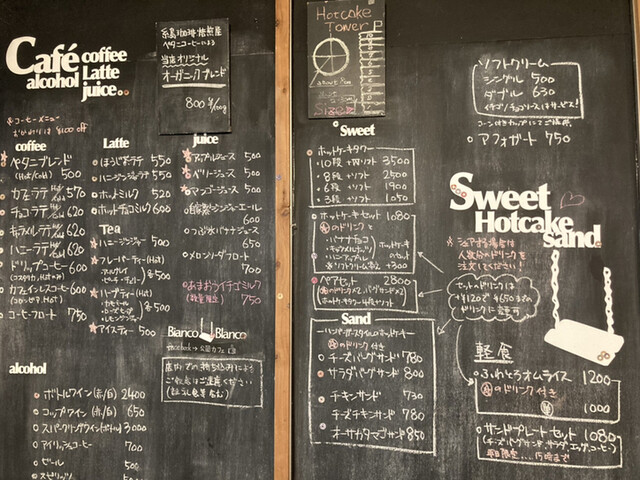 Café
alcohol
coffee
Latte
juice
糸島珈琲焙煎屋
ペタニコーヒーによる
当店オリジナル
オーガニックブレンド
800¥/100g
※コーヒーメニュー
おかわりは¥100 off
coffee
ペタニブレンド
(Hot/cold) 500
カフェラテ Hot 570
チョコラテ 620
キャラメルラテ 620
ハニーラテ 620
ドリップコーヒー 600
カフェインレスコーヒー 600
コーヒーフロート 750
Latte
ほうじ茶ラテ 550
ハニージンジャーラテ 550
ホットミルク 520
ホットチョコミルク 600
Tea
ハニージンジャー 500
フレーバーティー(Hot)
各500
ハーブティー(Hot)
各500
アイスティー 500
juice
アップルジュース 500
ベリージュース 500
マンゴージュース 500
自家製ジンジャーエール
600
つぶ氷バナナジュース
650
メロンソーダフロート
700
あまおうイチゴミルク
(数量限定) 750
Bianco Blanco
店内での持ち込みによる
ご飲食はご遠慮ください
alcohol
ボトルワイン(赤/白) 2400
コップワイン(赤/白) 650
スパークリングワイン(ボトル) 3000
アイリッシュコーヒー 700
ビール 500
Hotcake
Tower
about 8cm
Sweet
ホットケーキタワー
10段 +四ソフト 3500
8段 +ソフト 2500
6段 +ソフト 1900
3段 +ソフト 1050
ホットケーキセット 1080
のドリンクと
・バナナチョコ
・キャラメルナッツ
・ハニーアップル
ホットケーキ
のセット
※ソフトクリーム +300
ペアセット 2800
Sand
ハンバーガースタイルのホットケーキ
のドリンク付き
チーズバーグサンド 780
サラダバーグサンド 800
チキンサンド 730
チーズチキンサンド 780
オーサカタマゴサンド 850
ソフトクリーム
シングル 500
ダブル 630
イチゴ/チョコソースはサービス!
コーン付きカップにてご提供
アフォガート 750
Sweet
Hotcake
sand
※シェアする場合は
人数分のドリンクを
注文してください!
セットのドリンクは
+¥120で¥650までの
ドリンクに変更可
軽食
ふわとろオムライス 1200
のドリンク付き
1000
サンドプレートセット 1080
(チーズバーグサンド、サラダ、エッグ、コーヒー)
平日限定 15時まで